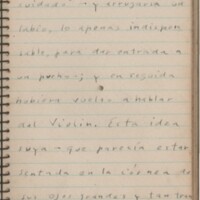 cuidado - y arrugaría un
labio, lo apenas indispen
sable, para dar entrada a
un pucho; y en seguida
hubiera vuelto a hablar
del Violín. Esta idea
suya - que parecía estar
sentada en la córnea de
sus ojos grandes y tan